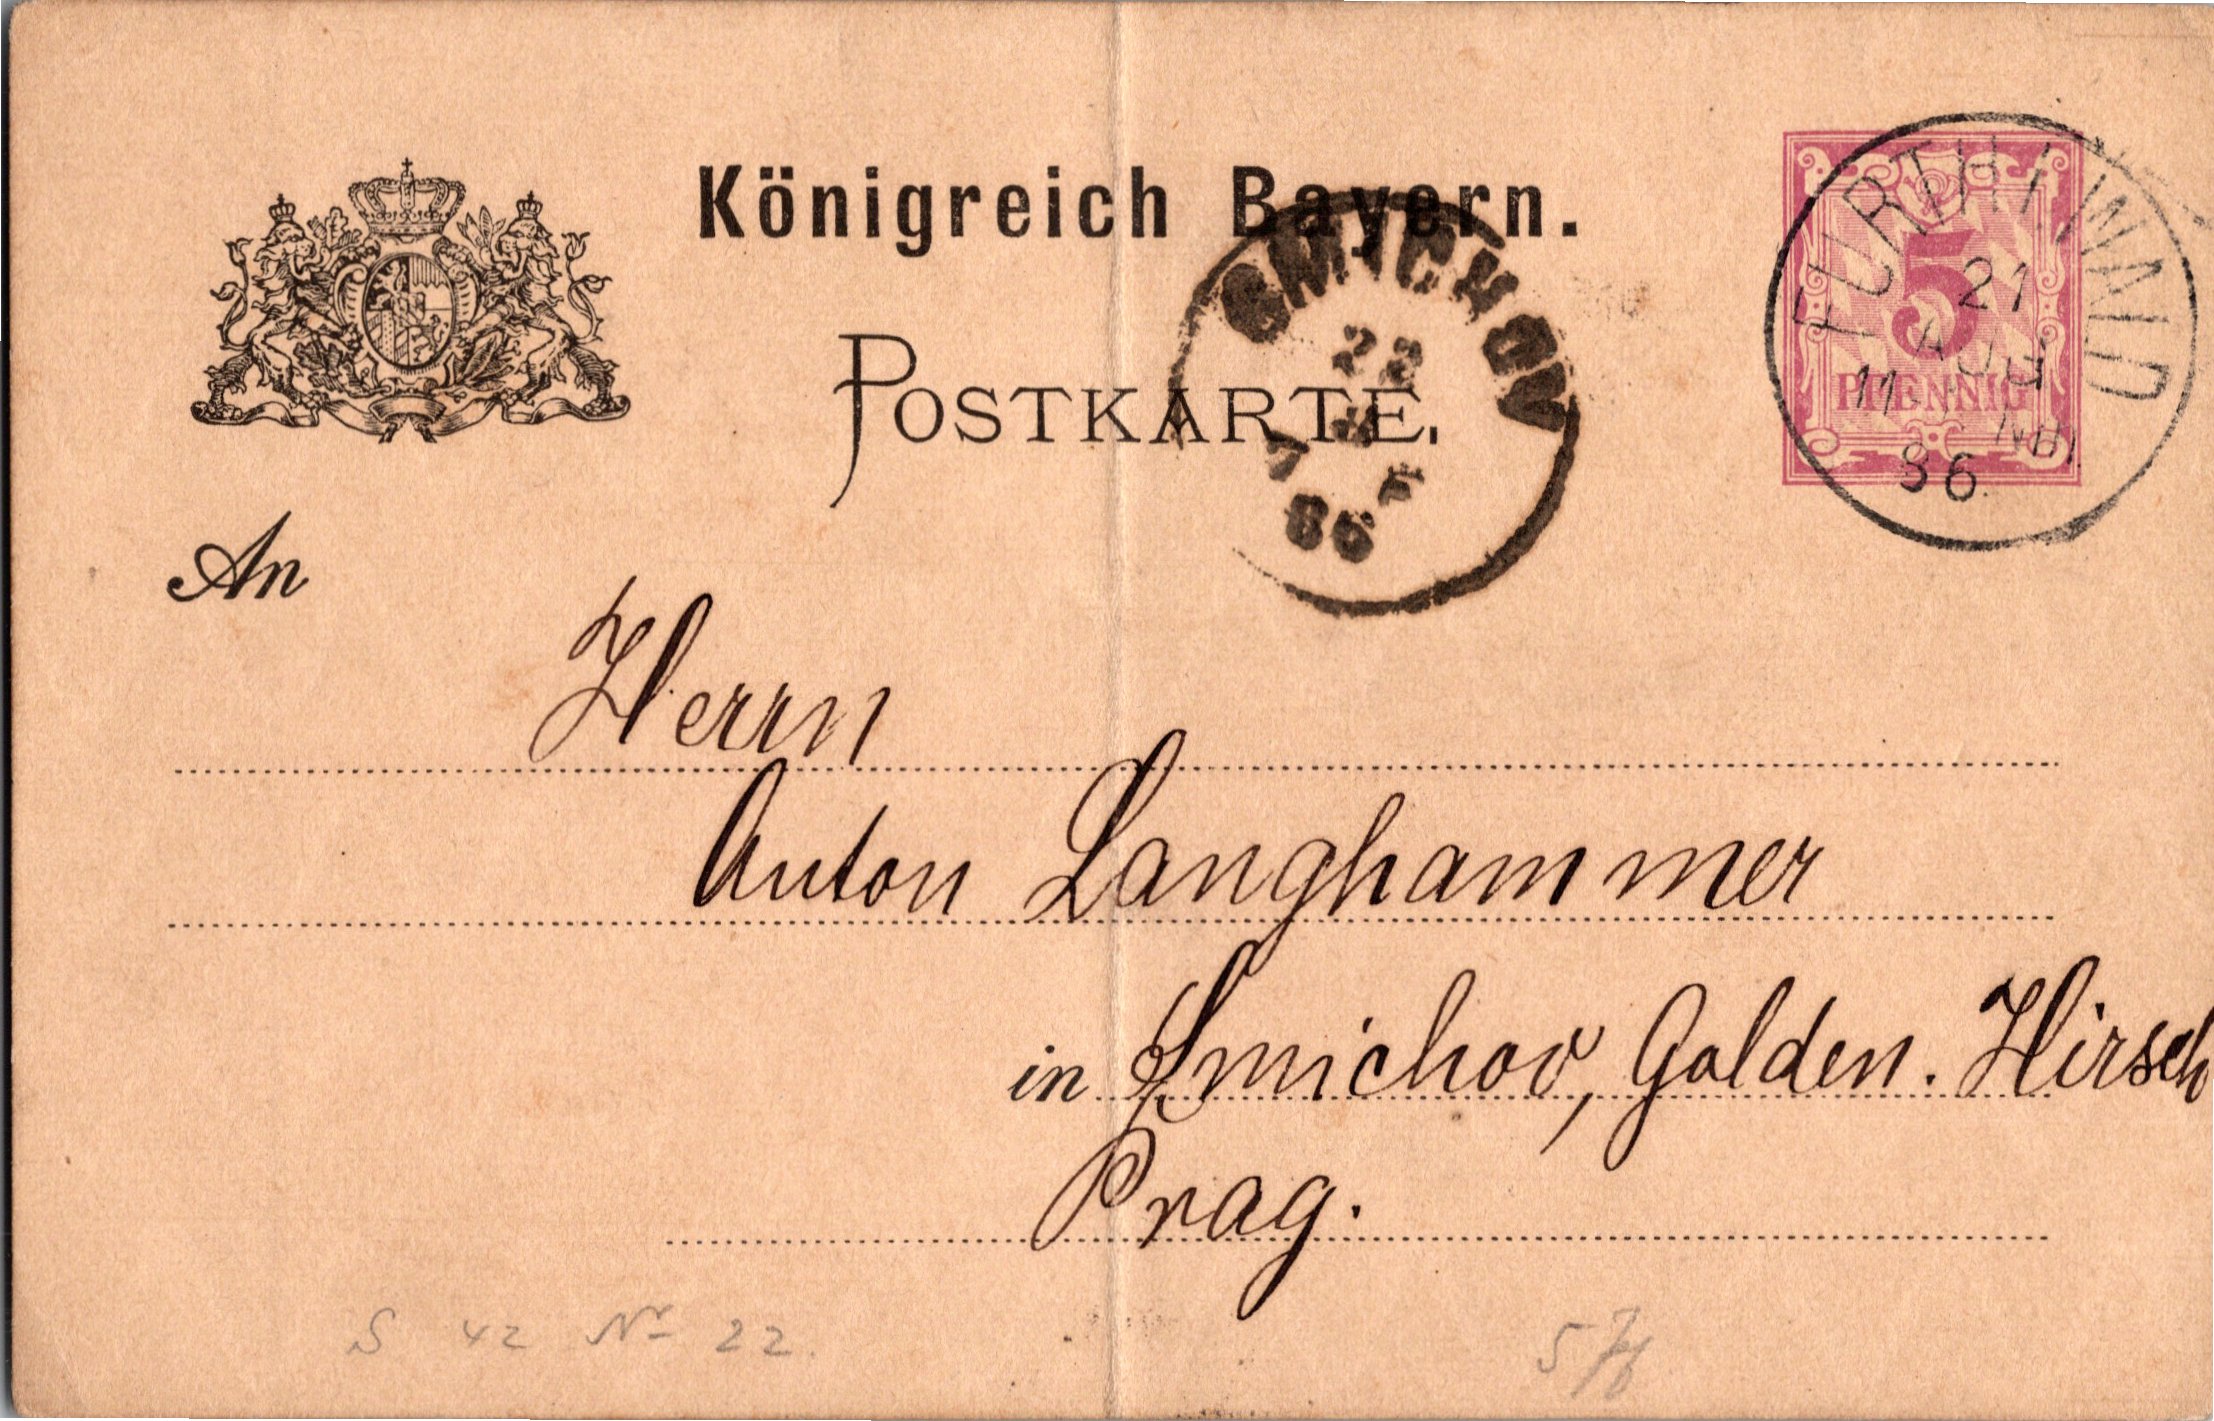 Königreich Bayern.
POSTKARTE.
5
PFENNIG
FURTH I WALD
21
AUG
86
SMICHOV
22
86
An
Herrn
Anton Langhammer
in Smichov, Golden. Hirsch
Prag.
S 42 Nr 22.
5 Pf